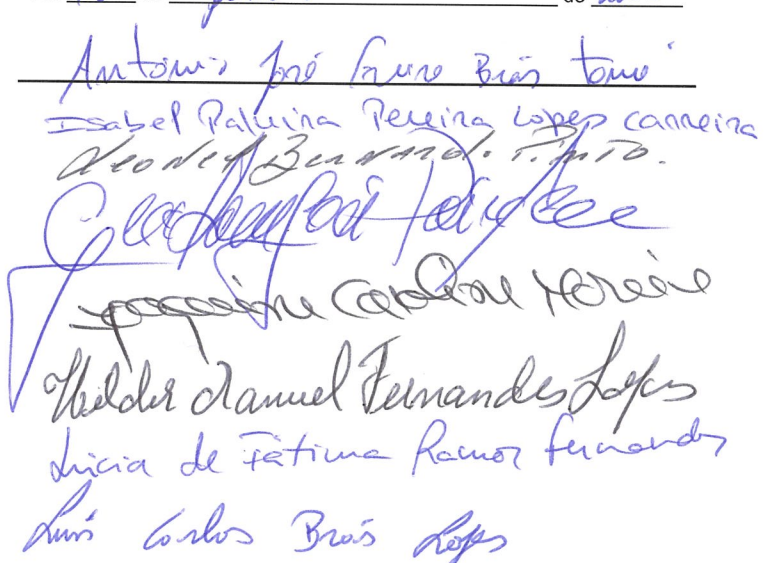 de
António José Freire Brás Tomé
Isabel Palmira Pereira Lopes Carreira
Leonel Bernard. Pinto.
José
Joaquim Carolino Moreira
Helder Manuel Fernandes Lopes
Lúcia de Fátima Ramos Fernandes
Luís Carlos Brás Lopes